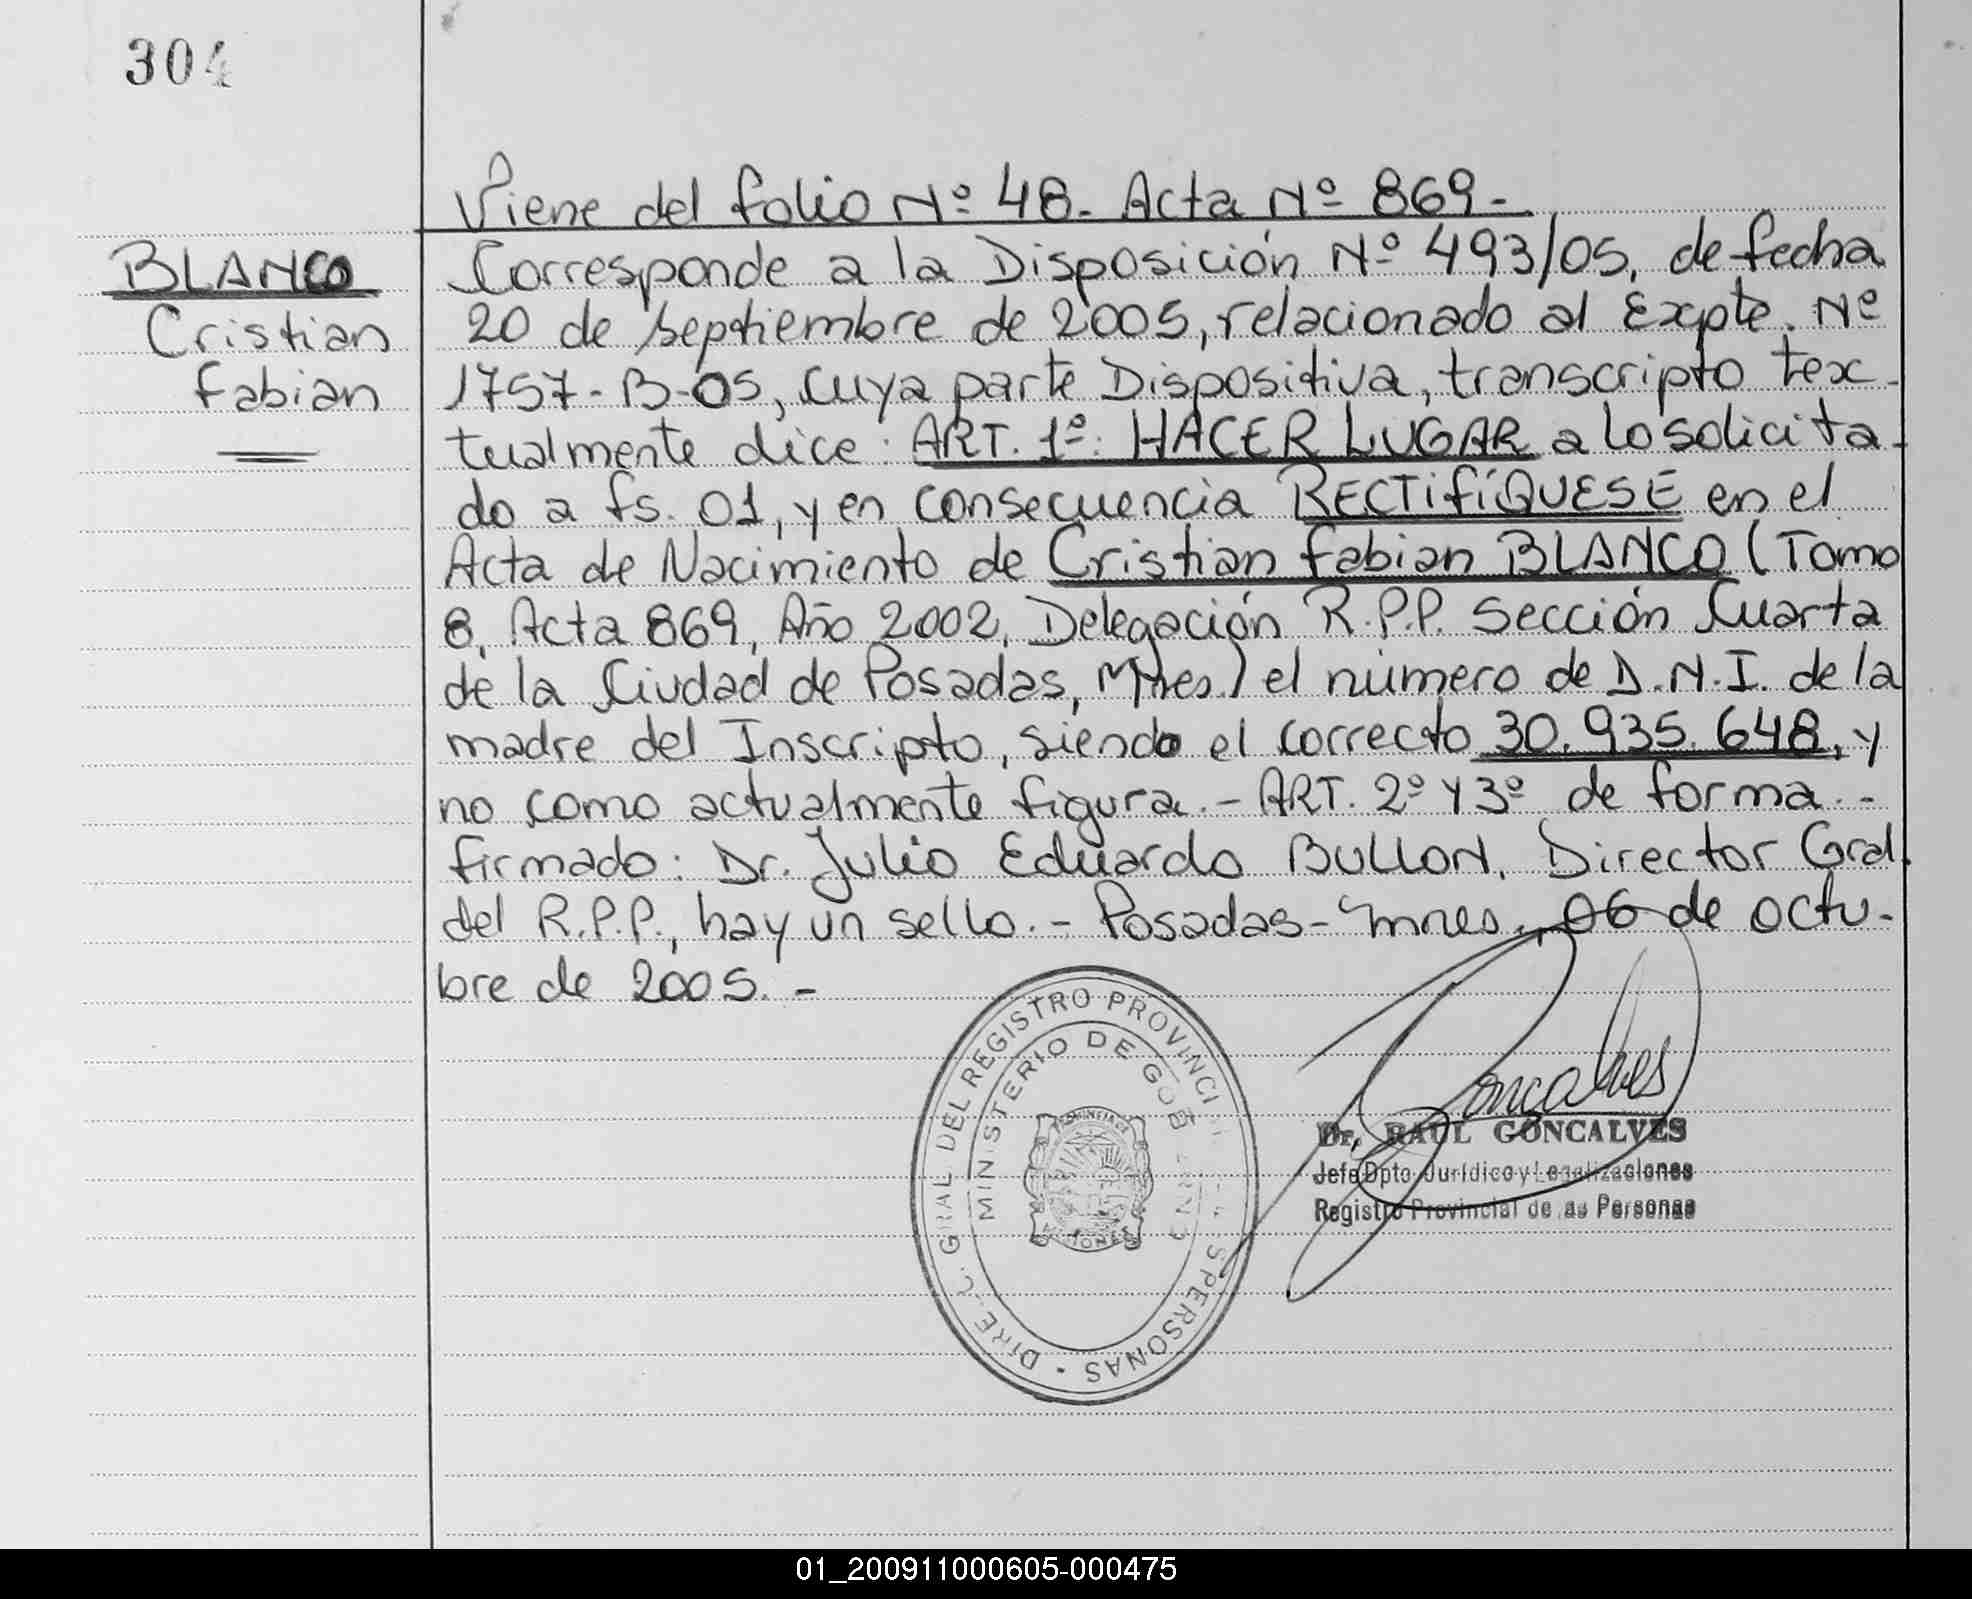 304
Viene del folio Nº 48- Acta Nº 869-
BLANCO
Cristian
Fabian
Corresponde a la Disposición Nº 493/05, de fecha
20 de septiembre de 2005, relacionado al Expte. Nº
1757-B-05, cuya parte Dispositiva, transcripto tex-
tualmente dice: ART. 1º: HACER LUGAR a lo solicita-
do a fs. 01, y en consecuencia RECTIFÍQUESE en el
Acta de Nacimiento de Cristian Fabian BLANCO (Tomo
8, Acta 869, Año 2002, Delegación R.P.P. Sección Cuarta
de la Ciudad de Posadas, Mnes) el número de D.N.I. de la
madre del Inscripto, siendo el correcto 30.935.648, y
no como actualmente figura.- ART. 2º y 3º de forma.-
Firmado: Dr. Julio Eduardo BULLON, Director Gral.
del R.P.P., hay un sello.- Posadas- Mnes., 06 de octu-
bre de 2005.-
GRAL DEL REGISTRO PROVINCI PERSONAS -
MINISTERIO DE GOB
PROVINCIA DE
MISIONES
Goncalves
Dr. RAUL GONCALVES
Jefe Dpto Jurídico y Legalizaciones
Registro Provincial de as Personas
01_200911000605-000475